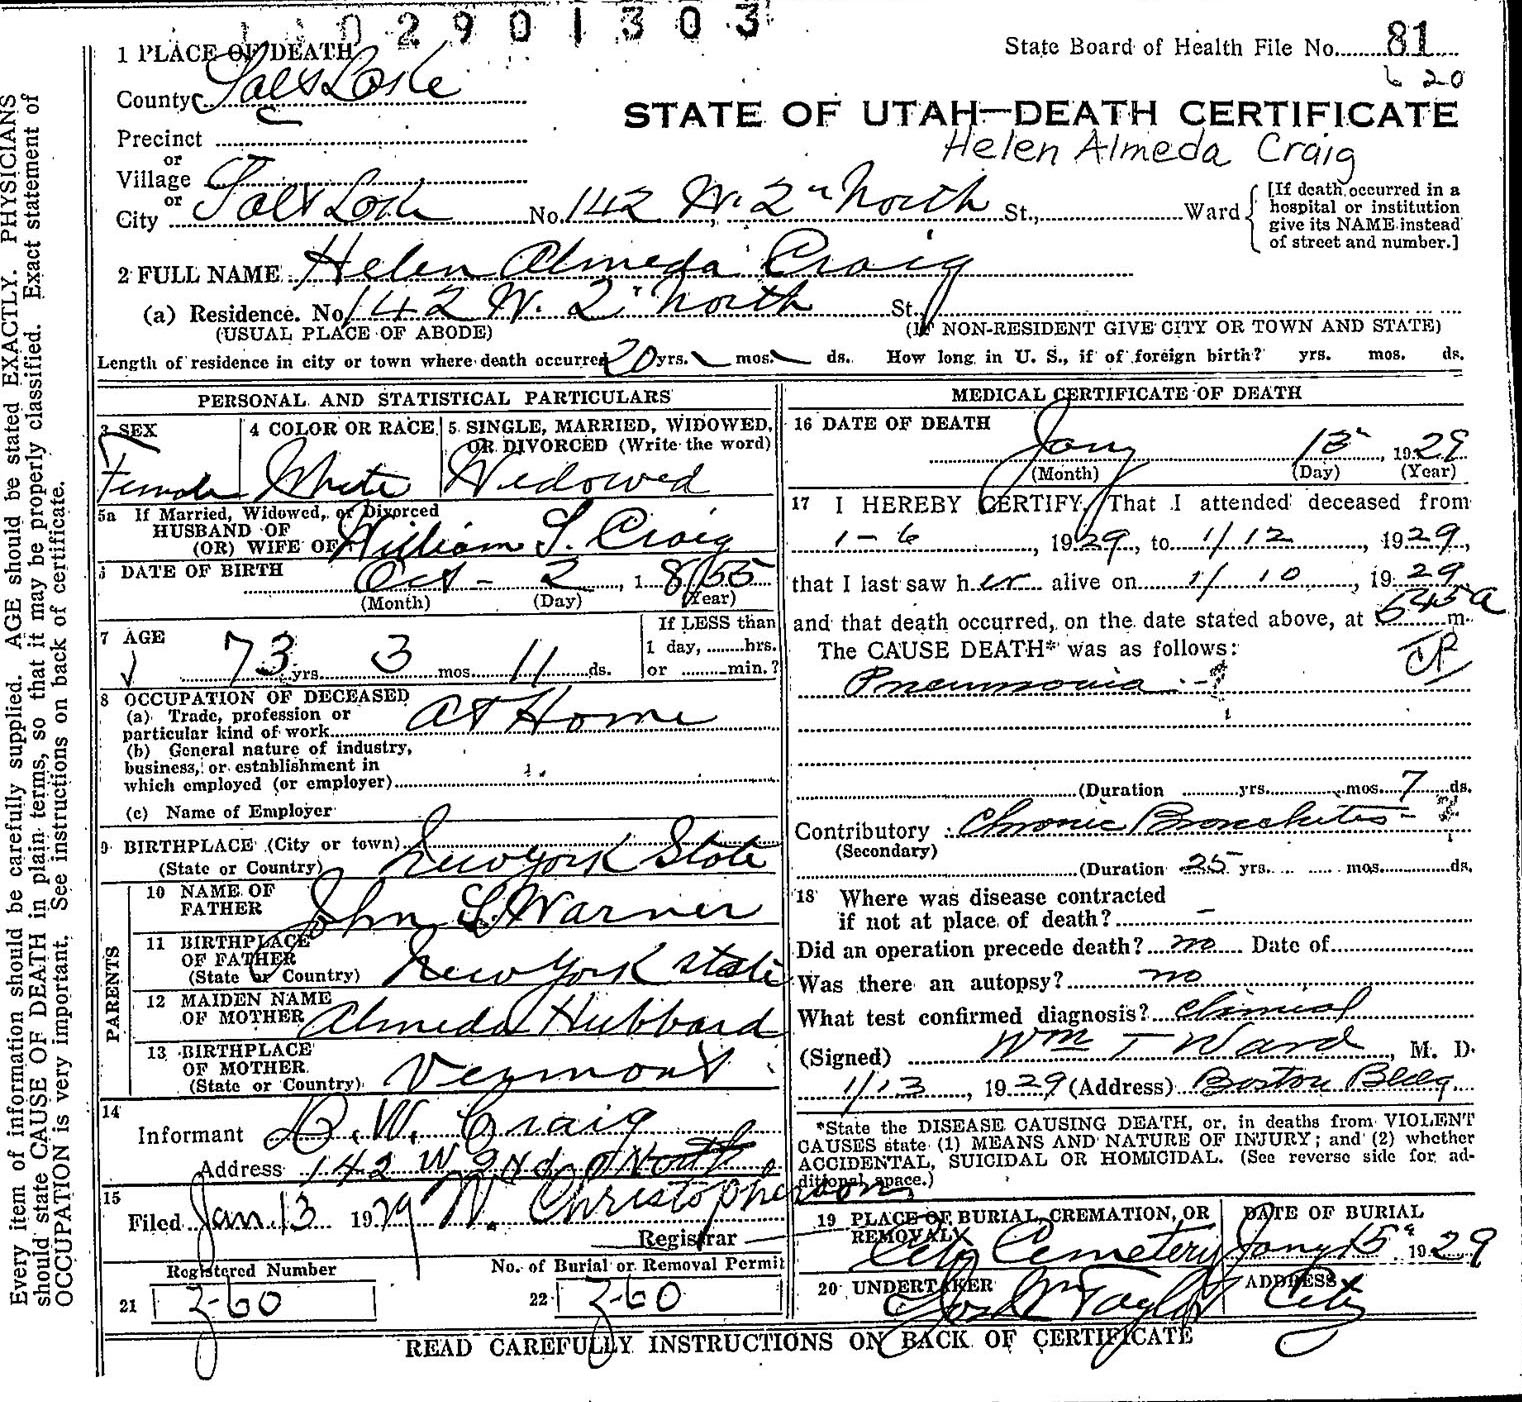 1 0 2 9 0 1 3 0 3
1 PLACE OF DEATH
State Board of Health File No. 81
620
County Salt Lake
STATE OF UTAH—DEATH CERTIFICATE
Precinct
Helen Almeda Craig
or
Village
or
City Salt Lake No. 142 W. 2" North St., Ward
[If death occurred in a hospital or institution give its NAME instead of street and number.]
2 FULL NAME Helen Almeda Craig
(a) Residence. No. 142 W. 2" North St.
(USUAL PLACE OF ABODE) (IF NON-RESIDENT GIVE CITY OR TOWN AND STATE)
Length of residence in city or town where death occurred 20 yrs. mos. ds. How long in U. S., if of foreign birth? yrs. mos. ds.
PERSONAL AND STATISTICAL PARTICULARS
3 SEX
Female
4 COLOR OR RACE
White
5 SINGLE, MARRIED, WIDOWED,
OR DIVORCED (Write the word)
Widowed
5a If Married, Widowed, or Divorced
HUSBAND OF
(OR) WIFE OF William S. Craig
DATE OF BIRTH Oct - 2, 1855
(Month) (Day) (Year)
7 AGE
73 yrs. 3 mos. 11 ds.
If LESS than
1 day, hrs.
or min.?
8 OCCUPATION OF DECEASED
(a) Trade, profession or
particular kind of work At Home
(b) General nature of industry,
business, or establishment in
which employed (or employer)
(c) Name of Employer
9 BIRTHPLACE (City or town)
(State or Country) New York State
PARENTS
10 NAME OF
FATHER John S. Warner
11 BIRTHPLACE
OF FATHER
(State or Country) New York State
12 MAIDEN NAME
OF MOTHER Almeda Hubbard
13 BIRTHPLACE
OF MOTHER
(State or Country) Vermont
14
Informant R. W. Craig
Address 142 W 2nd North
15
Filed Jan 13 1929 W. Christopherson
Registrar
Registered Number
21 Z-60
No. of Burial or Removal Permit
22 Z-60
MEDICAL CERTIFICATE OF DEATH
16 DATE OF DEATH
Jany 13", 1929
(Month) (Day) (Year)
17 I HEREBY CERTIFY, That I attended deceased from
1-6, 1929, to 1/12, 1929,
that I last saw her alive on 1/10, 1929
and that death occurred, on the date stated above, at 545 a m.
The CAUSE DEATH* was as follows:
Pneumonia
(Duration yrs. mos. 7 ds.
Contributory Chronic Bronchitis
(Secondary)
(Duration 25 yrs. mos. ds.
18 Where was disease contracted
if not at place of death? -
Did an operation precede death? no Date of
Was there an autopsy? no
What test confirmed diagnosis? Clinical
(Signed) Wm T Ward, M. D.
1/13, 1929 (Address) Boston Bldg
*State the DISEASE CAUSING DEATH, or, in deaths from VIOLENT
CAUSES state (1) MEANS AND NATURE OF INJURY; and (2) whether
ACCIDENTAL, SUICIDAL OR HOMICIDAL. (See reverse side for ad-
ditional space.)
19 PLACE OF BURIAL, CREMATION, OR
REMOVAL
City Cemetery
DATE OF BURIAL
Jany 15", 1929
20 UNDERTAKER
Jos. Wm Taylor
ADDRESS
City
READ CAREFULLY INSTRUCTIONS ON BACK OF CERTIFICATE
Every item of information should be carefully supplied. AGE should be stated EXACTLY. PHYSICIANS
should state CAUSE OF DEATH in plain terms, so that it may be properly classified. Exact statement of
OCCUPATION is very important. See instructions on back of certificate.